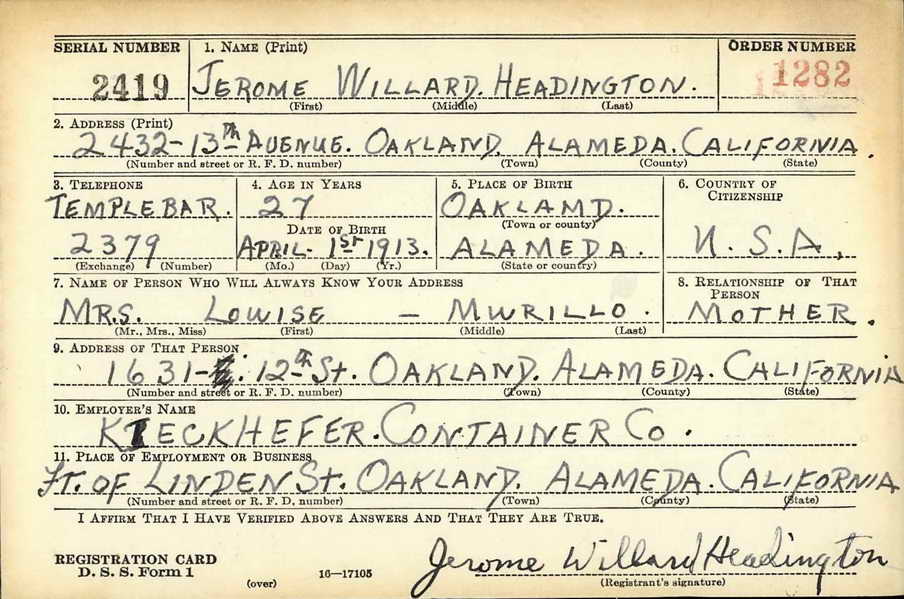 SERIAL NUMBER 1. NAME (Print) ORDER NUMBER
2419 JEROME WILLARD. HEADINGTON. 1282
(First) (Middle) (Last)
2. ADDRESS (Print)
2432-13th AUENUE. OAKLAND, ALAMEDA. CALIFORNIA.
(Number and street or R. F. D. number) (Town) (County) (State)
3. TELEPHONE 4. AGE IN YEARS 5. PLACE OF BIRTH 6. COUNTRY OF CITIZENSHIP
TEMPLEBAR. 27 OAKLAMD.
DATE OF BIRTH (Town or county)
2379 APRIL- 1st 1913. ALAMEDA. U.S.A,
(Exchange) (Number) (Mo.) (Day) (Yr.) (State or country)
7. NAME OF PERSON WHO WILL ALWAYS KNOW YOUR ADDRESS 8. RELATIONSHIP OF THAT PERSON
MRS. LOUISE - MURILLO. MOTHER.
(Mr., Mrs., Miss) (First) (Middle) (Last)
9. ADDRESS OF THAT PERSON
1631- 12th St. OAKLAND. ALAMEDA. CALIFORNIA
(Number and street or R. F. D. number) (Town) (County) (State)
10. EMPLOYER'S NAME
KIECKHEFER. CONTAINER CO.
11. PLACE OF EMPLOYMENT OR BUSINESS
Ft. OF LINDEN St. OAKLAND, ALAMEDA. CALIFORNIA
(Number and street or R. F. D. number) (Town) (County) (State)
I AFFIRM THAT I HAVE VERIFIED ABOVE ANSWERS AND THAT THEY ARE TRUE.
REGISTRATION CARD Jerome Willard Headington
D. S. S. Form 1 (over) 16—17105 (Registrant's signature)